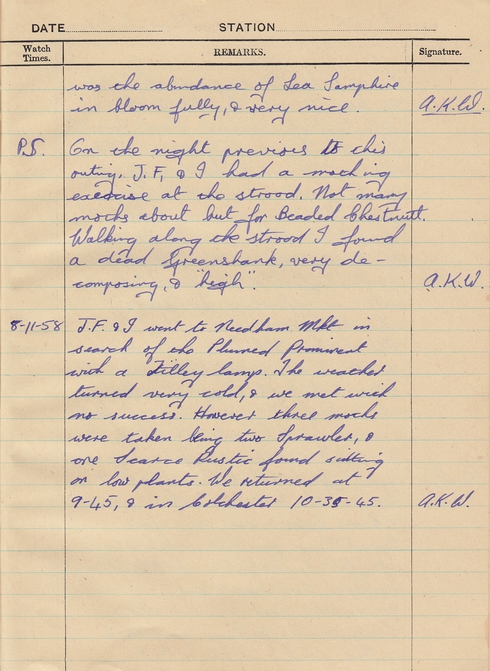 DATE STATION
Watch Times. REMARKS. Signature.
was the abundance of Sea Samphire
in bloom fully, & very nice. A.K.W.
P.S. On the night previous to this
outing, J.F, & I had a mothing
exercise at the strood. Not many
moths about but for Beaded Chestnutt.
Walking along the strood I found
a dead Greenshank, very de-
composing, & "high". A.K.W.
8-11-58 J.F. & I went to Needham Mkt in
search of the Plumed Prominent
with a Tilley lamp. The weather
turned very cold, & we met with
no success. However three moths
were taken being two Sprawler, &
one Scarce Rustic found sitting
on low plants. We returned at
9-45, & in Colchester 10-35-45. A.K.W.